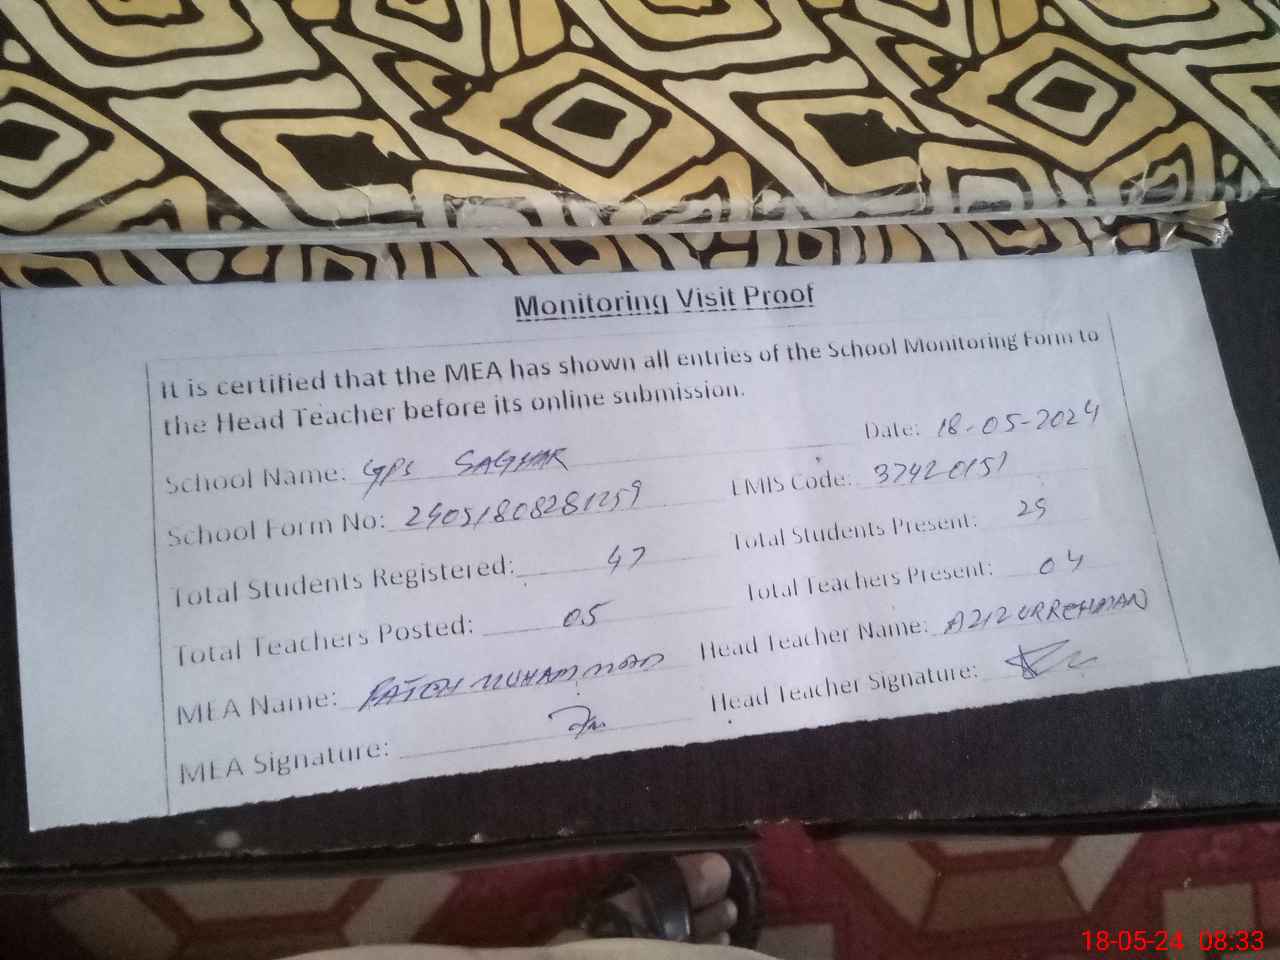 Monitoring Visit Proof
It is certified that the MEA has shown all entries of the School Monitoring Form to
the Head Teacher before its online submission.
School Name: GPS SAGHAR Date: 18-05-2024
School Form No: 24051808281259 EMIS Code: 37420151
Total Students Registered: 47 Total Students Present: 29
Total Teachers Posted: 05 Total Teachers Present: 04
MEA Name: FATEH MUHAMMAD Head Teacher Name: AZIZ UR REHMAN
MEA Signature: Head Teacher Signature:
18-05-24 08:33